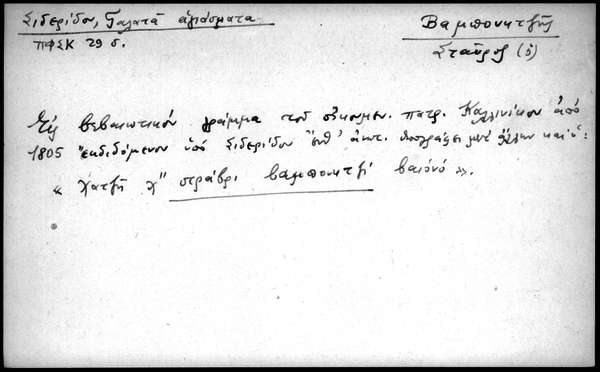 Σιδερίδου, Γαλατᾶ ἁγιάσματα
ΠΦΣΚ 29 δ.
Βαμπουκτζῆς
Σταῦρος (ὁ)
Εἰς βεβαιωτικόν γράμμα τοῦ οἰκουμεν. πατρ. Καλλινίκου ἀπό
1805 ἐκδιδόμενον ὑπό Σιδερίδου ἔνθ' ἀνωτ. ὑπογράφει μετ' ἄλλων καί ὁ:
« χατζῆ χ" σταῦρι βαμπουκτζῆ βαιόνό ».